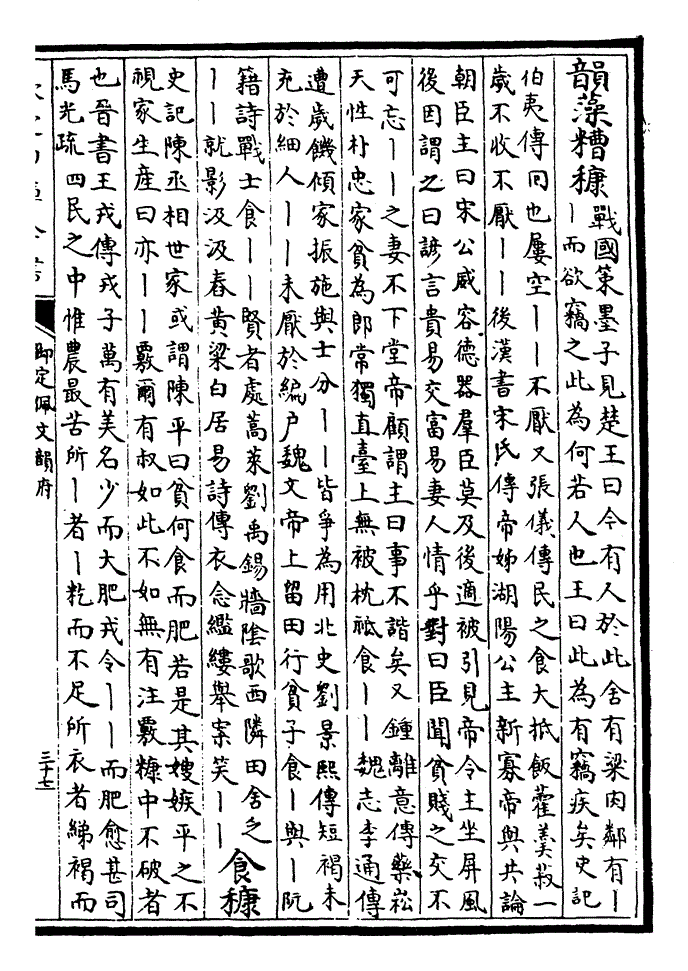 韻藻糟糠
戰國策墨子見楚王曰今有人於此舍有梁肉鄰有丨
丨而欲竊之此為何若人也王曰此為有竊疾矣史記
伯夷傳囘也屢空丨丨不厭又張儀傳民之食大抵飯藿羹菽一
歲不收不厭丨丨後漢書宋氏傳帝姊湖陽公主新寡帝與共論
朝臣主曰宋公威容德器羣臣莫及後適被引見帝令主坐屏風
後因謂之曰諺言貴易交富易妻人情乎對曰臣聞貧賤之交不
可忘丨丨之妻不下堂帝顧謂主曰事不諧矣又鍾離意傳藥崧
天性朴忠家貧為郎常獨直臺上無被枕袛食丨丨魏志李通傳
遭歲饑傾家振施與士分丨丨皆爭為用北史劉景熙傳短褐未
充於細人丨丨未厭於編户魏文帝上留田行貧子食丨與丨阮
籍詩戰士食丨丨賢者處蒿萊劉禹錫牆陰歌西隣田舍乏
丨丨就影汲汲舂黄粱白居易詩傳衣念繿縷舉案笑丨丨
食糠
史記陳丞相世家或謂陳平曰貧何食而肥若是其嫂嫉平之不
視家生産曰亦丨丨覈爾有叔如此不如無有注覈糠中不破者
也晉書王戎傳戎子萬有美名少而大肥戎令丨丨而肥愈甚司
馬光疏四民之中惟農最苦所丨者丨籺而不足所衣者綈褐而
御定佩文韻府
三十七